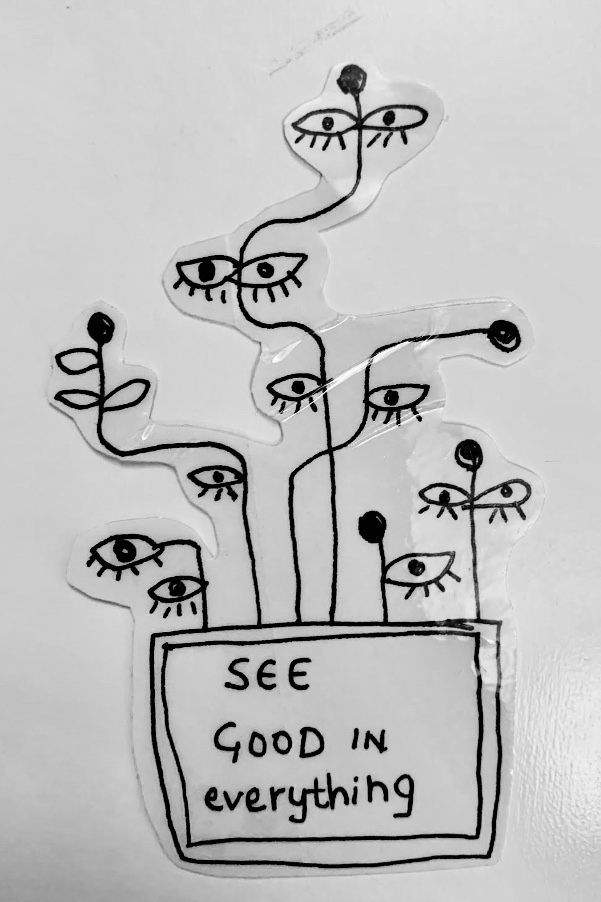 SEE
GOOD IN
everything